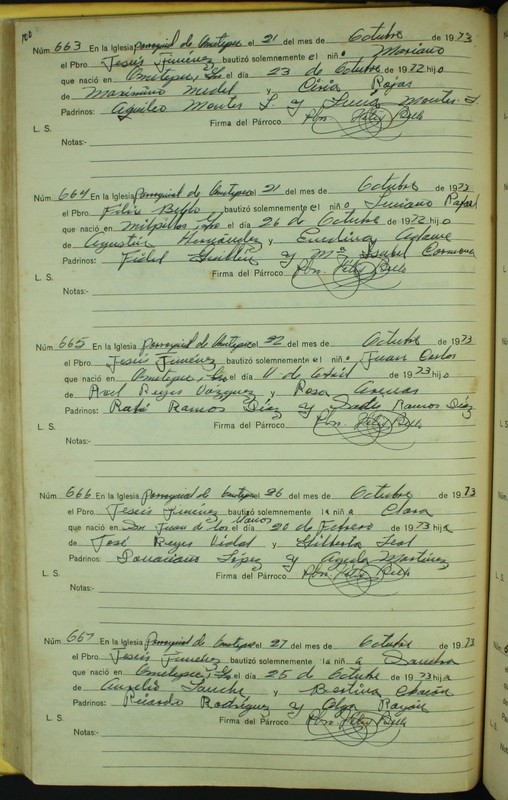 100
Núm. 663 En la Iglesia parroquial de Ometepec el 21 del mes de Octubre de 1973
el Pbro. Jesús Jiménez bautizó solemnemente el niño Mariano
que nació en Ometepec, Gro el día 23 de Octubre de 1972 hijo
de Maximino Medel y Ciria Rojas
Padrinos: Aquileo Montes S. y Lucía Montes S.
L. S. Firma del Párroco Pbro. Félix Bello
Notas:-
Núm. 664 En la Iglesia parroquial de Ometepec el 21 del mes de Octubre de 1973
el Pbro. Félix Bello bautizó solemnemente el niño Luciano Rafael
que nació en el día 26 de Octubre de 1972 hijo
de Agustín Hernández y
Padrinos: Fidel y Ma. Isabel Carmona
L. S. Firma del Párroco Pbro. Félix Bello
Notas:-
Núm. 665 En la Iglesia parroquial de Ometepec el 22 del mes de Octubre de 1973
el Pbro. Jesús Jiménez bautizó solemnemente el niño Juan Carlos
que nació en Ometepec, Gro el día 11 de Abril de 1973 hijo
de Reyes Vázquez y Rosa Arenas
Padrinos: Rafa Ramos Díaz y Ramos Díaz
L. S. Firma del Párroco Pbro. Félix Bello
Notas:-
Núm. 666 En la Iglesia parroquial de Ometepec 26 del mes de Octubre de 1973
el Pbro. Jesús Jiménez bautizó solemnemente la niña Clara
que nació en San Juan de los Llanos el día 20 de Febrero de 1973 hija
de José Reyes Vidal y Gilberta Leal
Padrinos: López y Agueda Martínez
L. S. Firma del Párroco Pbro. Félix Bello
Notas:-
Núm. 667 En la Iglesia parroquial de Ometepec el 27 del mes de Octubre de 1973
el Pbro. Jesús Jiménez bautizó solemnemente la niña Sandra
que nació en Ometepec, Gro el día 25 de Octubre de 1973 hija
de Aurelio y Bertina
Padrinos: Ricardo Rodríguez y Olga Rayón
L. S. Firma del Párroco Pbro. Félix Bello
Notas:-